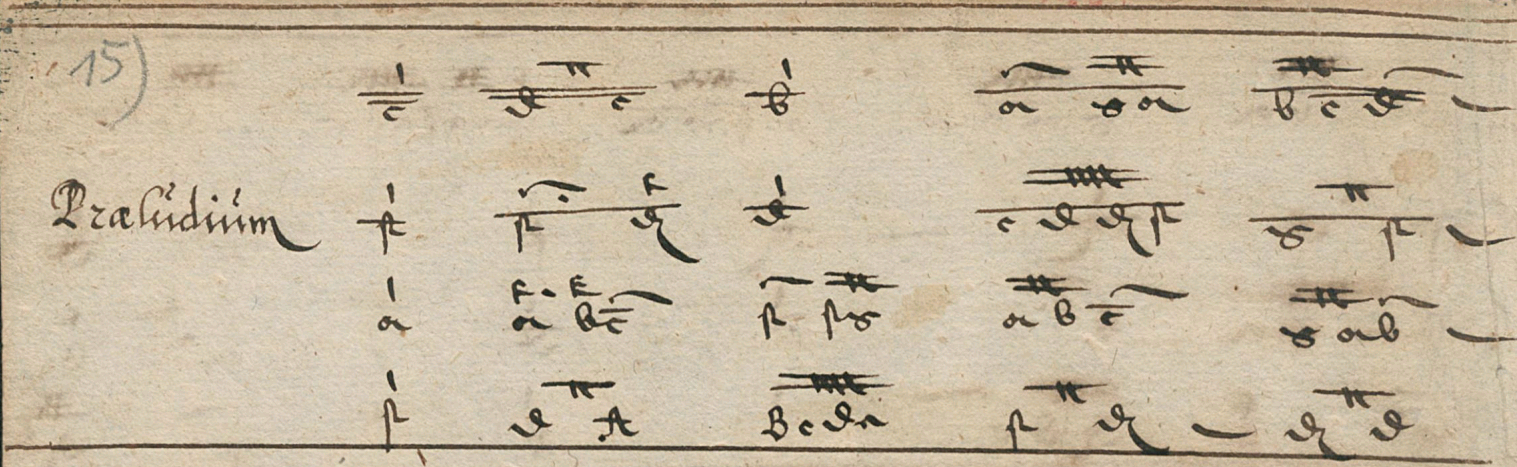 15)
c d c b a g a b c d
Præludium f f d d c d d f g f
a a b c f f g a b c g a b
f d A B c d e f d d d